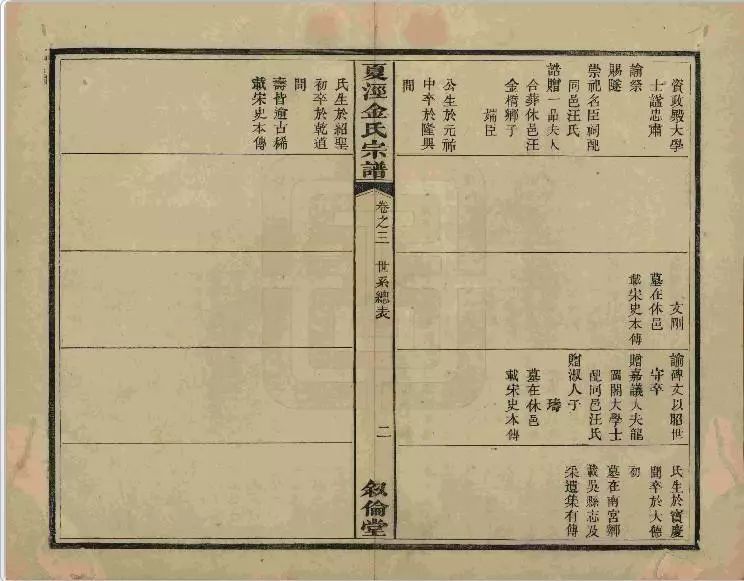 資政殿大學
士諡忠肅
諭祭
賜隧
崇祀名臣祠配
同邑汪氏
誥贈一品夫人
合葬休邑汪
金橋鄉子
端臣
公生於元祐
中卒於隆興
間
文剛
墓在休邑
載宋史本傳
諭碑文以昭世
守卒
贈嘉議大夫龍
圖閣大學士
配同邑汪氏
贈淑人子
璹
墓在休邑
載宋史本傳
氏生於寶慶
間卒於大德
初
墓在南宮鄉
載吳縣志及
采遺集有傳
夏涇金氏宗譜
卷之三
世系總表
二
敘倫堂
氏生於紹聖
初卒於乾道
間
壽皆逾古稀
載宋史本傳